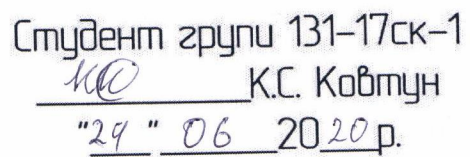 Студент групи 131-17ск-1
К.С. Ковтун
"24" 06 2020 р.